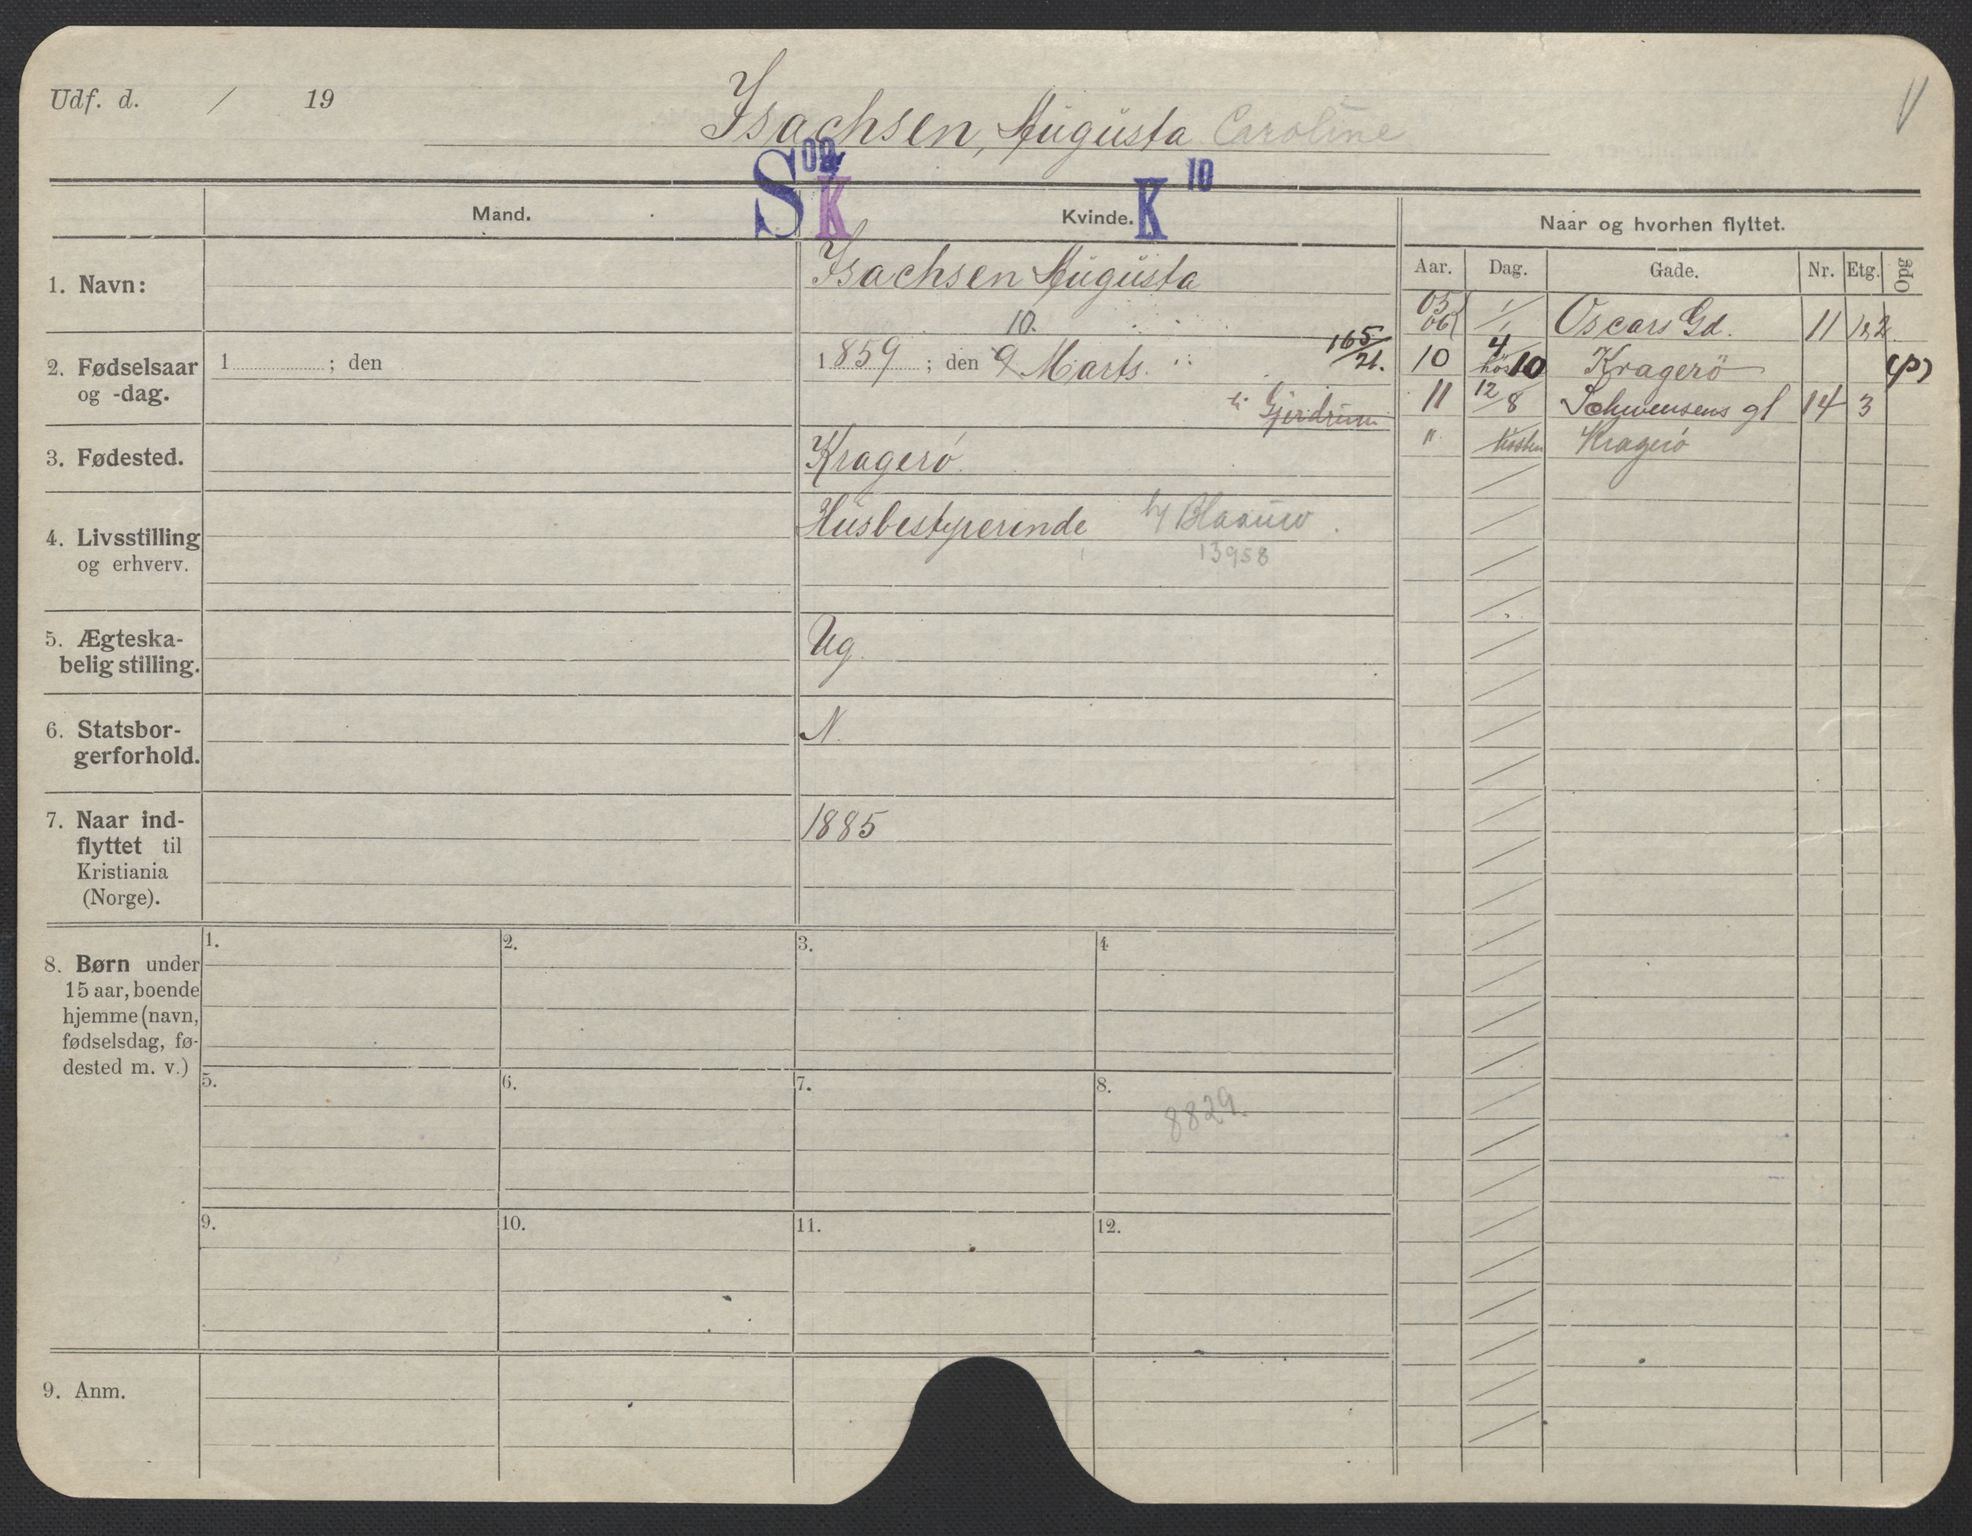 Udf. d. / 19
Isachsen, Augusta Caroline
V
S 00 K K 10
Mand. Kvinde. Naar og hvorhen flyttet.
Aar. Dag. Gade. Nr. Etg. Opg
1. Navn: Isachsen Augusta
05 06 1/1 Oscars Gd. 11 1&2
10.
2. Fødselsaar og -dag. 1 ; den 1859 ; den 9 Marts. 165/21.
10 4/10 Kragerö (P)
Gjerdrum
11 12/8 Schwensens gt 14 3
" høsten Kragerø
3. Fødested. Kragerö
4. Livsstilling og erhverv. Husbestyrerinde h/ Blaauw.
13958
5. Ægteskabelig stilling. Ug.
6. Statsborgerforhold. N.
7. Naar indflyttet til Kristiania (Norge). 1885
8. Børn under
15 aar, boende
hjemme (navn,
fødselsdag, fødested m. v.)
1. 2. 3. 4
5. 6. 7. 8.
8829.
9. 10. 11. 12.
9. Anm.